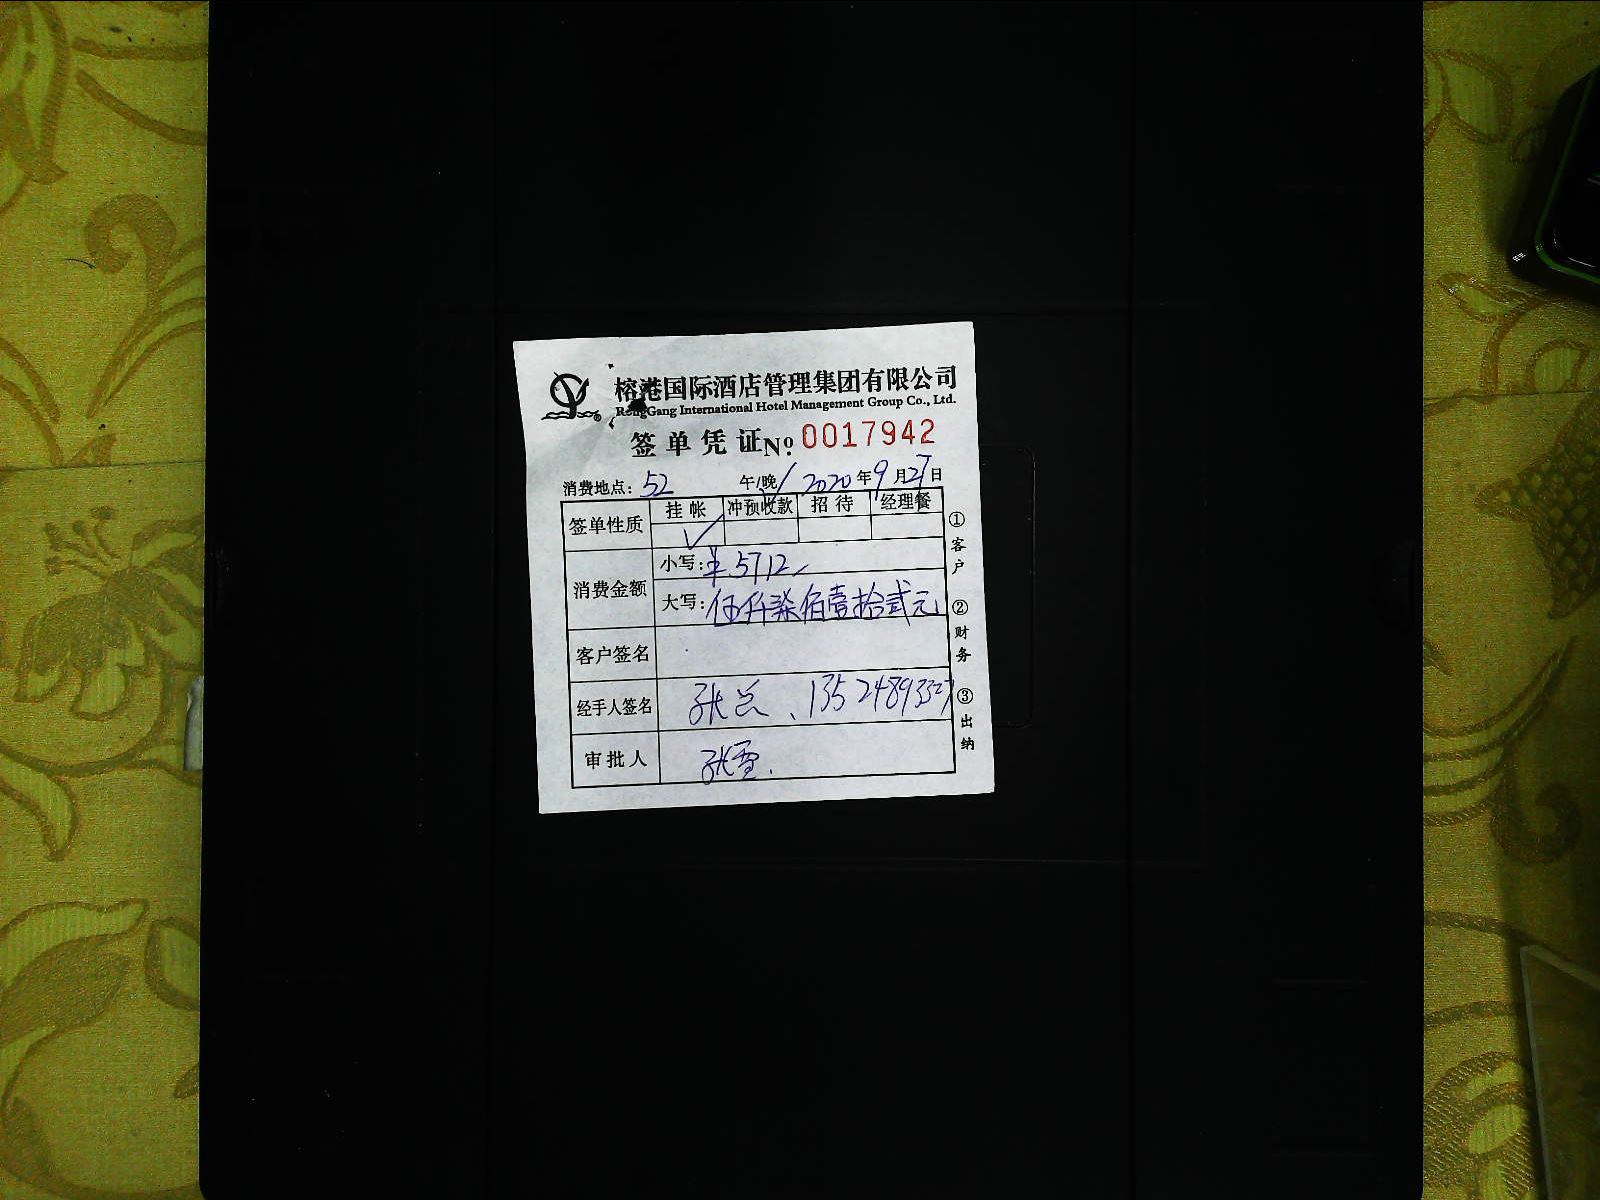 榕港国际酒店管理集团有限公司
RongGang International Hotel Management Group Co., Ltd.
签单凭证 No. 0017942
消费地点: 52 午/晚 2020年9月27日
签单性质 挂帐 冲预收款 招待 经理餐
✓
消费金额 小写: ¥5712
大写: 伍仟柒佰壹拾贰元
客户签名
经手人签名 张总、
审批人 张雪.
①客户 ②财务 ③出纳